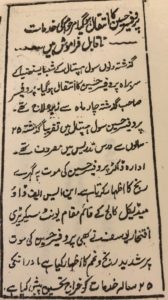 پروفیسر حسین کا انتقال ہو گیا، مرحوم کی خدمات
ناقابل فراموش ہیں
گذشتہ دنوں سول ہسپتال کے شعبۂ
سربراہ پروفیسر حسین کا انتقال ہو گیا۔ پروفیسر
صاحب گذشتہ چار ماہ سے
پروفیسر حسین سول ہسپتال میں تقریباً گذشتہ ۲۵
سالوں سے درس و تدریس میں مصروف تھے۔
ادارہ ڈاکٹر پروفیسر حسین کی موت پر گہرے
رنج کا اظہار کرتا ہے۔ این ایس ایف ڈاؤ
میڈیکل کالج کے قائم مقام یونٹ سیکریٹری
افتخار یوسف نے بھی پروفیسر حسین کی موت
پر شدید رنج و غم کا اظہار کیا ہے اور ان کی
۲۵ سالہ خدمات کو خراج تحسین پیش کیا ہے۔